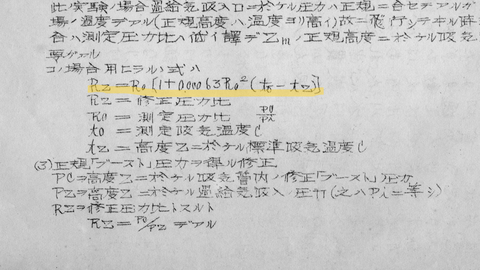 此実験ノ場合過給気吸入口ニ於ケル圧力ハ正規ニ合セテアルガ
場ノ温度デアル(正規高度ハ温度ヨリ高イ)故ニ飛行シテキル時
合ハ測定圧力比ハ低イ譯デZm ノ正規高度ニ於ケル吸気
要ガアル
コノ場合用ヒラルル式ハ
RZ=R0{1+0.00063R0²(t0-tZ)}
RZ=修正圧力比
R0=測定圧力比 P0/PZ
t0=測定吸気温度C
tZ=高度Zニ於ケル標準吸気温度C
(3)正規「ブースト」圧力ヲ得ル修正
PC=高度Zニ於ケル吸気管内ノ修正「ブースト」圧力
PZ=高度Zニ於ケル過給気吸入圧力(之ハPiニ等シ)
RZヲ修正圧力比トスルト
RZ=P0/PZ デアル